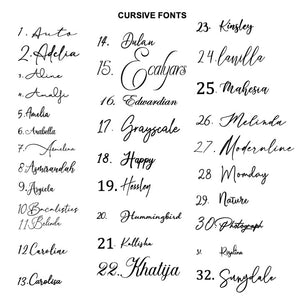 CURSIVE FONTS
1. Auto
2. Adelia
3. Aline
4. Analfi
5. Amelia
6. Arabella
7. Amelina
8. Asmirandah
9. Argiela
10. Bacalisties
11. Belinda
12. Caroline
13. Carolisa
14. Dulan
15. Ecalyars
16. Edwardian
17. Grayscale
18. Happy
19. Hossley
20. Hummingbird
21. Kallisha
22. Khatija
23. Kinsley
24. Lavilla
25. Mahesia
26. Melinda
27. Modernline
28. Monday
29. Nature
30. Photograph
31.
32. Sunydale